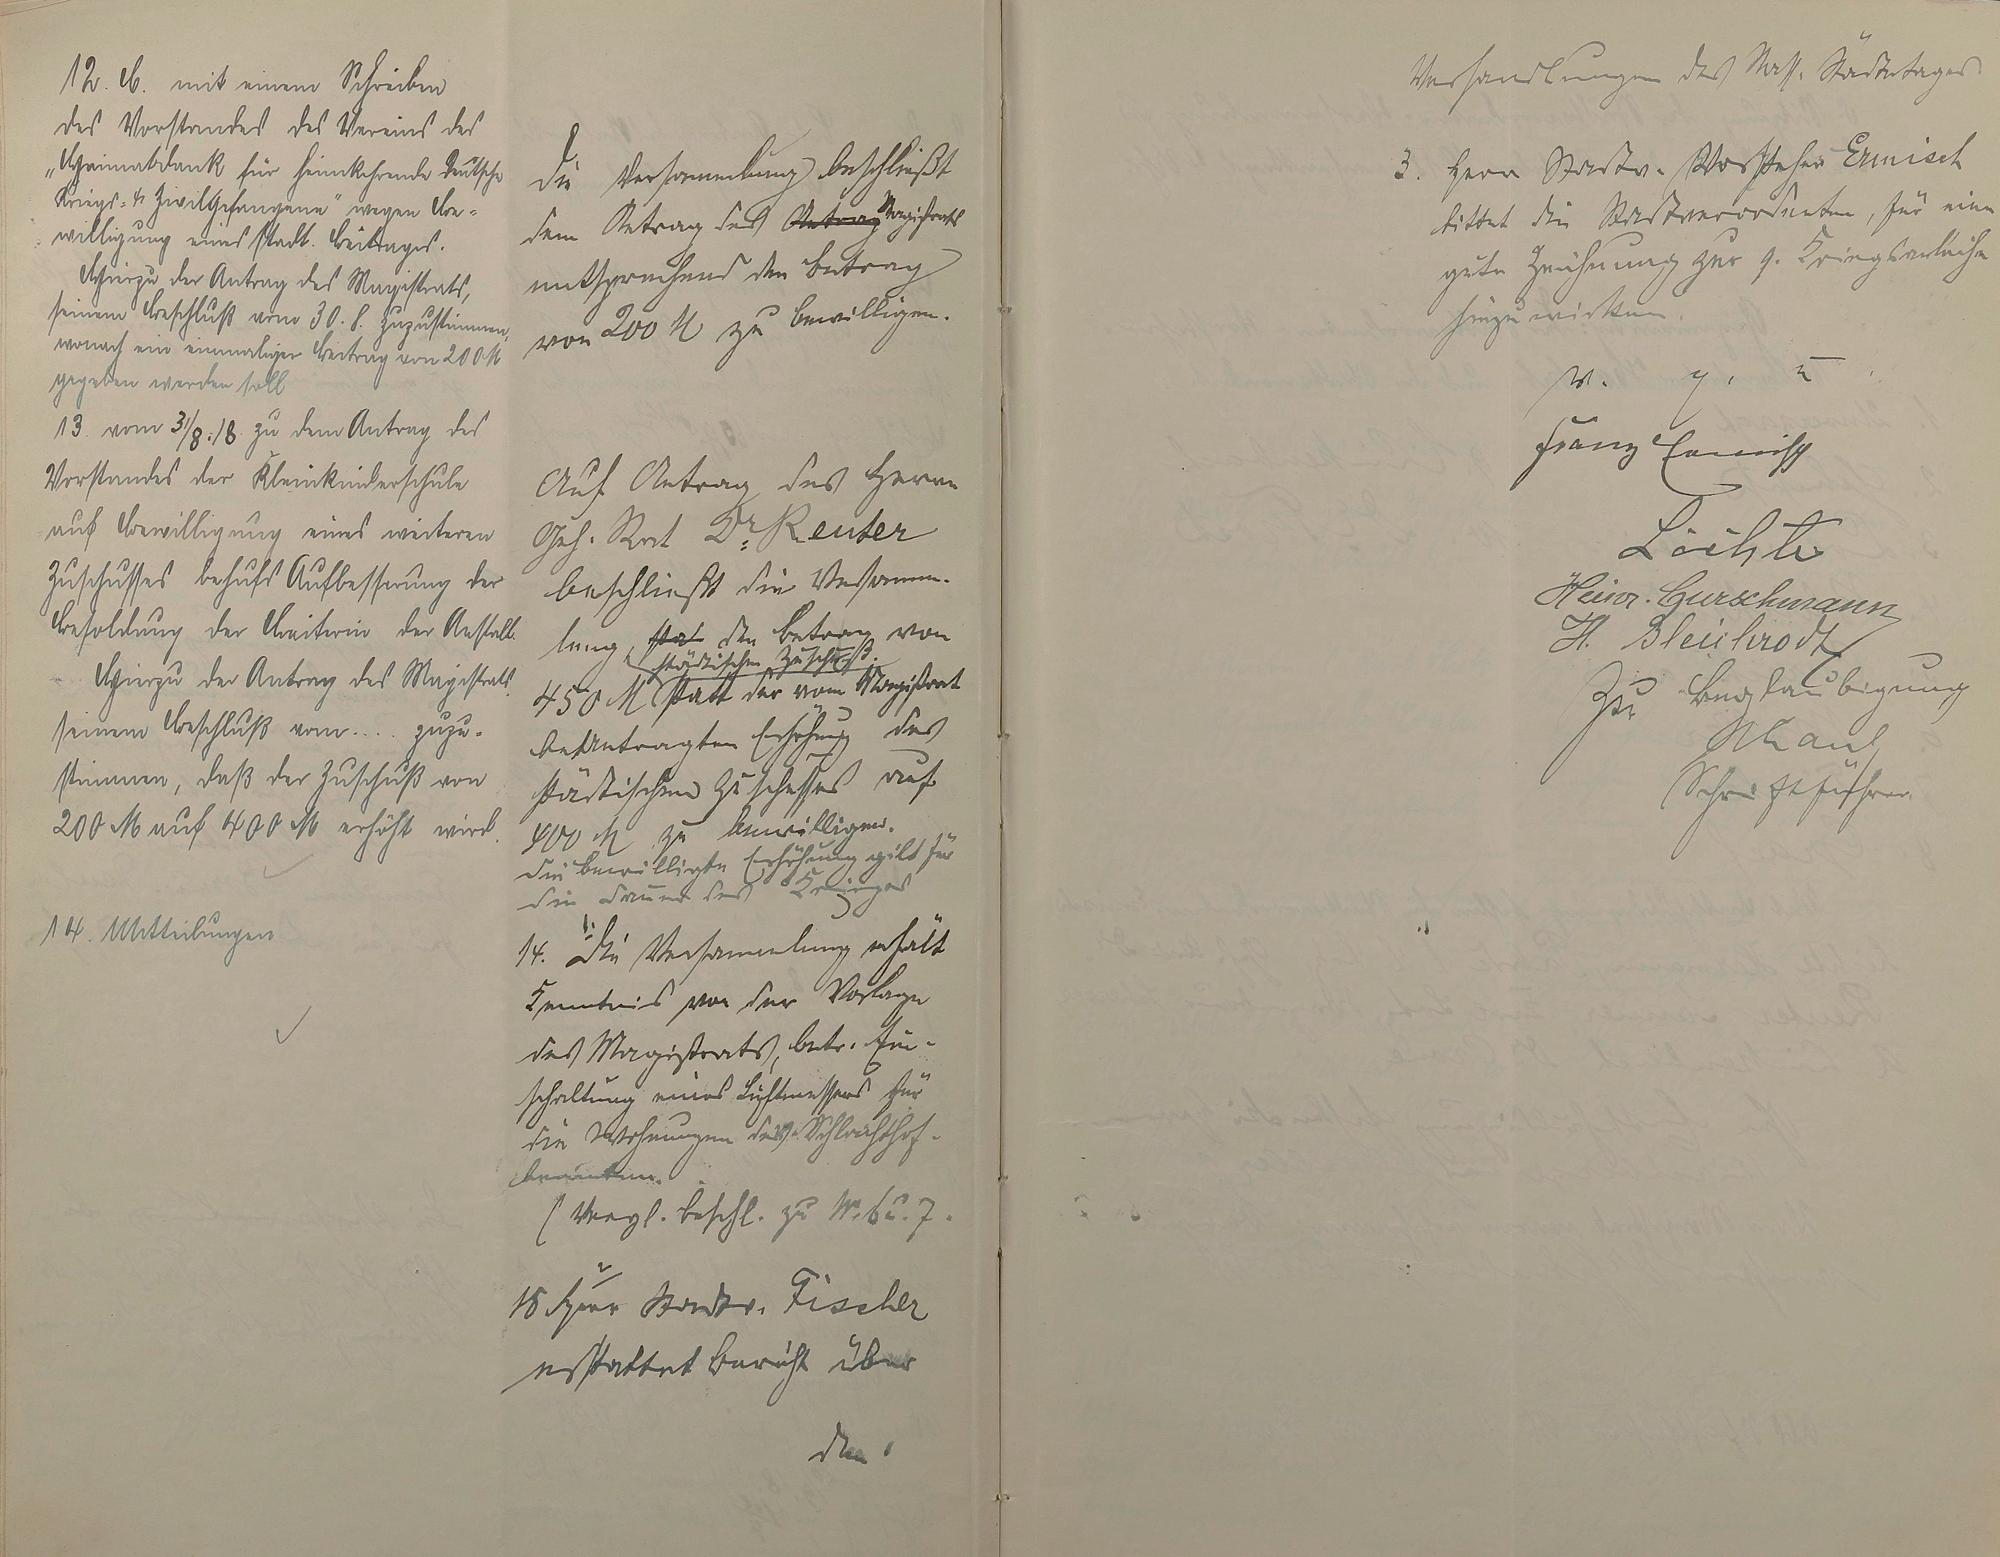 12. B. mit einem Schreiben
des Vorstandes des Vereins des
„Heimatdank für heimkehrende deutsche
Kriegs- & Zivilgefangene" wegen Be-
willigung eines städt. Beitrages.
Hierzu der Antrag des Magistrats,
seinem Beschluß vom 30. 8. zuzustimmen,
wonach ein einmaliger Beitrag von 200 M
gegeben werden soll
13. vom 31/8.18. zu dem Antrag des
Vorstandes der Kleinkinderschule
auf Bewilligung eines weiteren
Zuschusses behufs Aufbesserung der
Besoldung der Leiterin der Anstalt.
Hierzu der Antrag des Magistrats,
seinem Beschluß vom .... zuzu-
stimmen, daß der Zuschuß von
200 M auf 400 M erhöht wird.
14. Mitteilungen
Die Versammlung beschließt
dem Antrag des Antrag Magistrats
entsprechend den Betrag
von 200 M zu bewilligen.
Auf Antrag des Herrn
Geh. Rat Dr. Reuter
beschließt die Versamm-
lung, stat den Betrag von
städtischen Zuschuß
450 M statt der vom Magistrat
beantragten Erhöhung des
städtischen Zuschusses auf
400 M zu bewilligen.
Die bewilligte Erhöhung gilt für
die Dauer des Krieges
14. 1. Die Versammlung erhält
Kenntnis von der Vorlage
des Magistrats, betr. Ein-
schaltung eines Lichtmessers für
die Wohnungen der Schlachthof-
beamten.
(Vergl. Beschl. zu N. 6 u. 7.
2
15 Herr Stadtv. Fischer
erstattet Bericht über
den
Verhandlungen des Nass. Städtetages.
3. Herr Stadtv. Vorsteher Ermisch
bittet die Stadtverordneten, für eine
gute Zeichnung zur 9. Kriegsanleihe
hinzuwirken.
v. g. u
Franz Ermisch
Löchte
Heinr. Curschmann
H. Bleibrodt
Zur Beglaubigung
Schriftführer